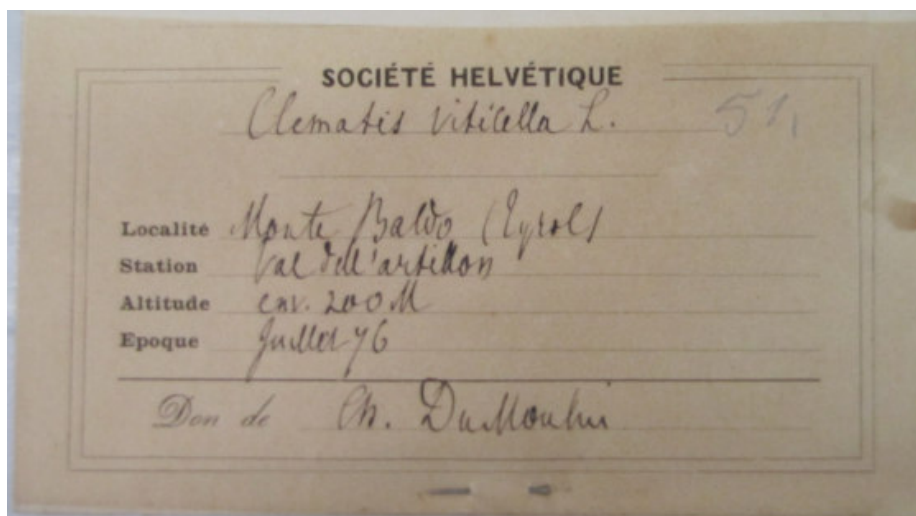 SOCIÉTÉ HELVÉTIQUE
Clematis Viticella L. 51,
Localité Monte Baldo (Tyrol)
Station Val dell'artillon
Altitude env. 200 M
Epoque Juillet 76
Don de Ch. DuMoulin